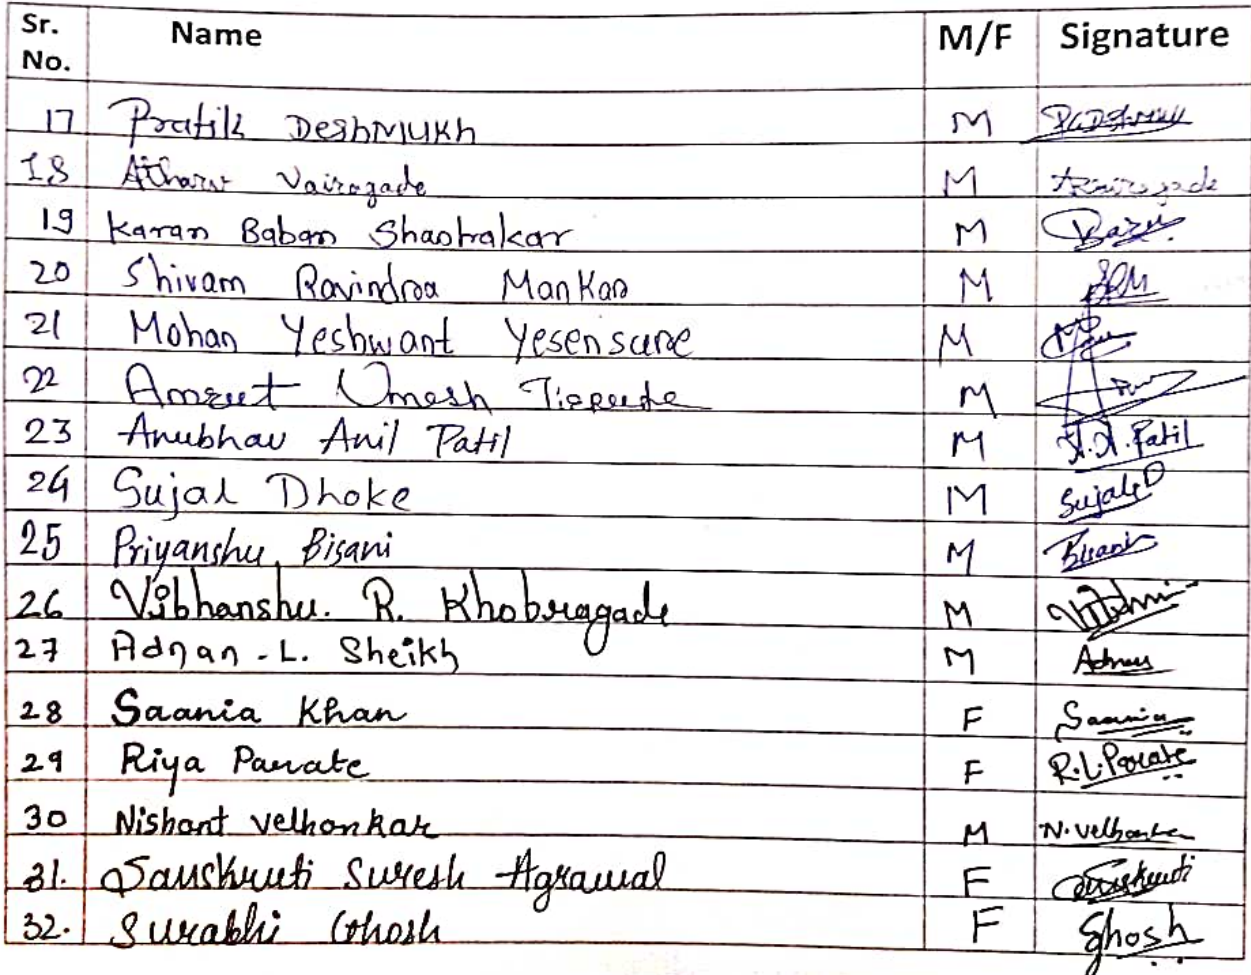 Sr. No. Name M/F Signature
17 Pratik DESHMUKH M
18 Atharv Vairagade M
19 Karan Baban Shashrakar M
20 Shivam Ravindra Mankar M SRM
21 Mohan Yeshwant Yesensure M
22 Amrut Umesh Tirpude M
23 Anubhav Anil Patil M A.A.Patil
24 Sujal Dhoke M Sujal D
25 Priyanshu Bisani M Bisani
26 Vibhanshu. R. Khobragade M
27 Adnan - L. Sheikh M Adnan
28 Saania Khan F Saania
29 Riya Parate F R.L.Parate
30 Nishant Velhonkar M N. Velhonkar
31. Sanskruti Suresh Agrawal F Sanskruti
32. Surabhi Ghosh F Ghosh